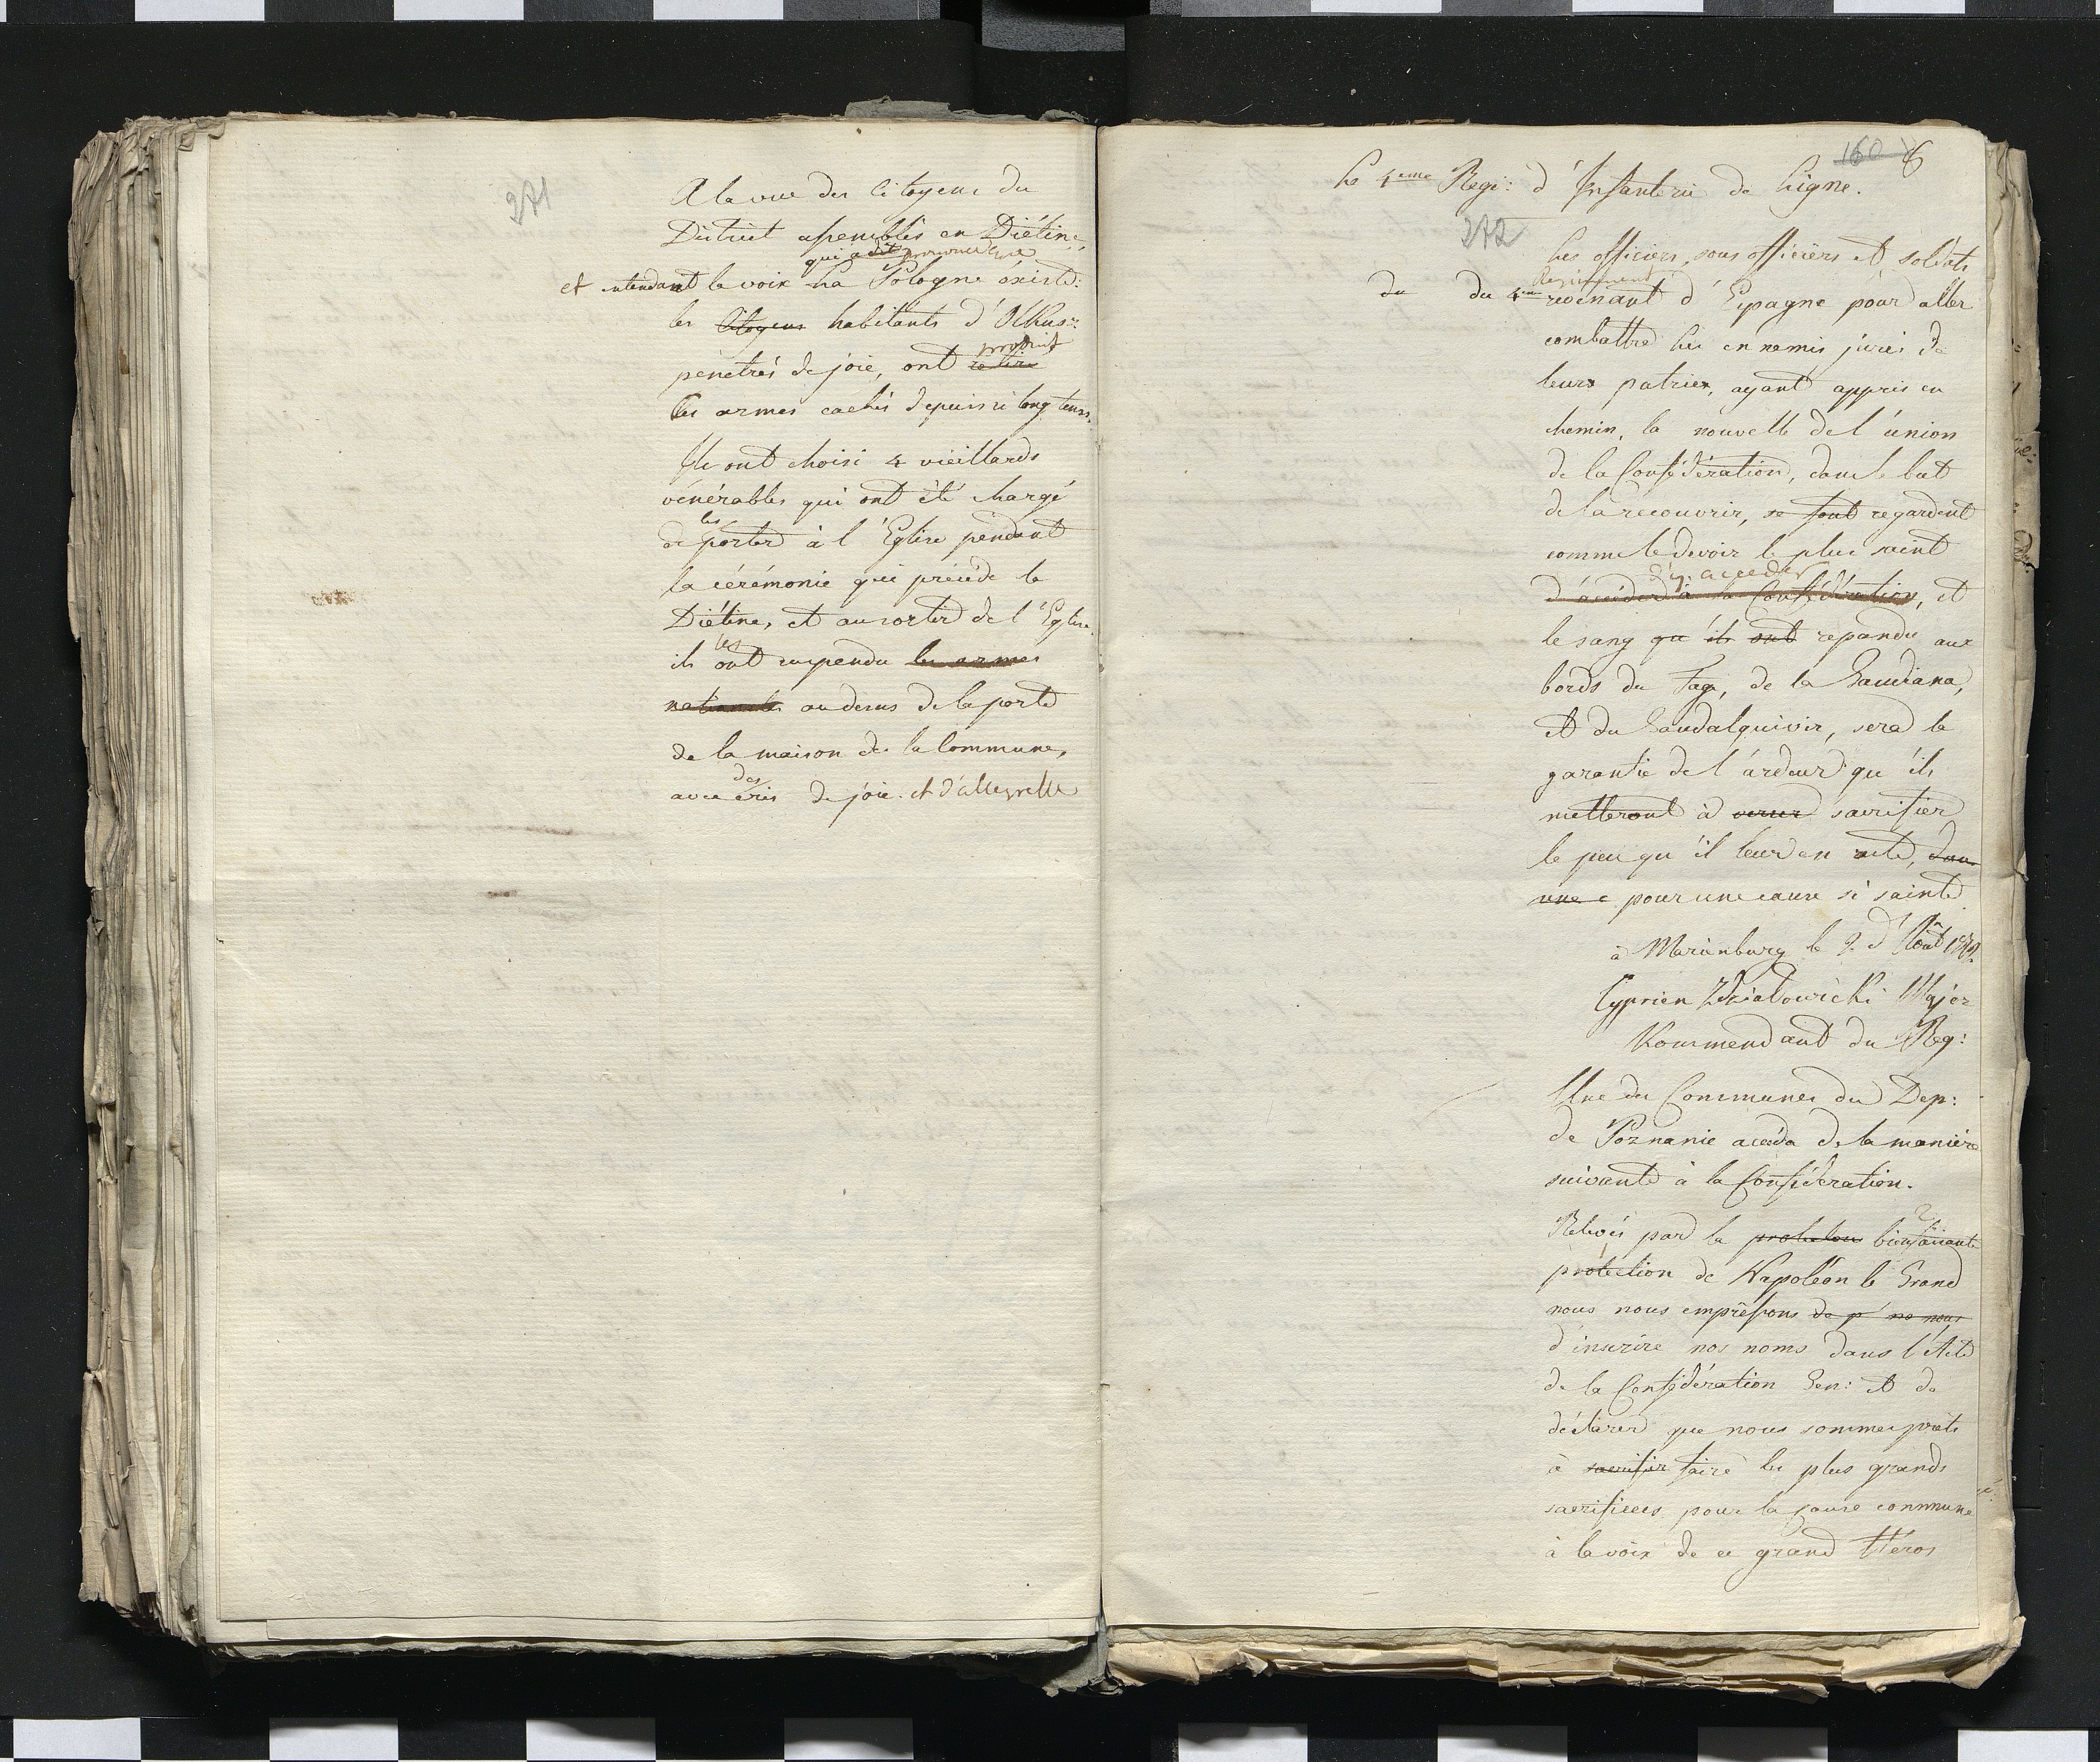 271
A la vue des Citoyens du
District assemblés en Diétine,
qui a dit prononcé
et entendant la voix La Pologne éxiste:
les Citoyens habitants d'Olkus:
produit
penetrés de joie, ont retiré
les armes cachés depuis si long tems.
Ils ont choisi 4 vieillards
vénérables qui ont été chargé
les
de porter à l'Eglise pendant
la cérémonie qui précéde la
Diétine, et au sortir de l'Eglise
les
ils ont suspendu les armes
nationales au desus de la porte
de la maison de la Commune,
des
avec cris de joie et d'allegresse
160 6
Le 4eme Regi: d'Infanterie de Ligne.
272
Les officiers, sous officiers et soldats
Regiment
du du 4eme revenant d'Espagne pour aller
combattre les ennemis jurés de
leurs patries, ayant appris en
chemin, la nouvelle de l'union
de la Confédération, dans le but
de la recouvrir, se font regardent
comme le devoir le plus saint
d'y acceder
d'accéder à la Confédération, et
le sang qu'ils ont repandu aux
bords du Tage, de la Gaudiana,
et du Gaudalquivir, sera la
garantie de l'ardeur qu'ils
metteront à verser sacrifier
le peu qu'il leur en reste, dans
une c pour une cause si sainte
à Marienburg le 9. d'Aôut 1812.
Cyprien Zdziatowicki Major
Kommendant du Reg:
Une des Communes du Dep:
de Poznanie acceda de la maniére
suivante à la Confédération.
Relevés par la protection bienfaisante
protection de Napoléon le Grand
nous nous empréssons de p no nous
d'inscrire nos noms dans l'Acte
de la Confédération Gen: et de
déclarer que nous sommes prets
à sacrifier faire les plus grands
sacrifices pour la cause commune
à la voix de ce grand Héros